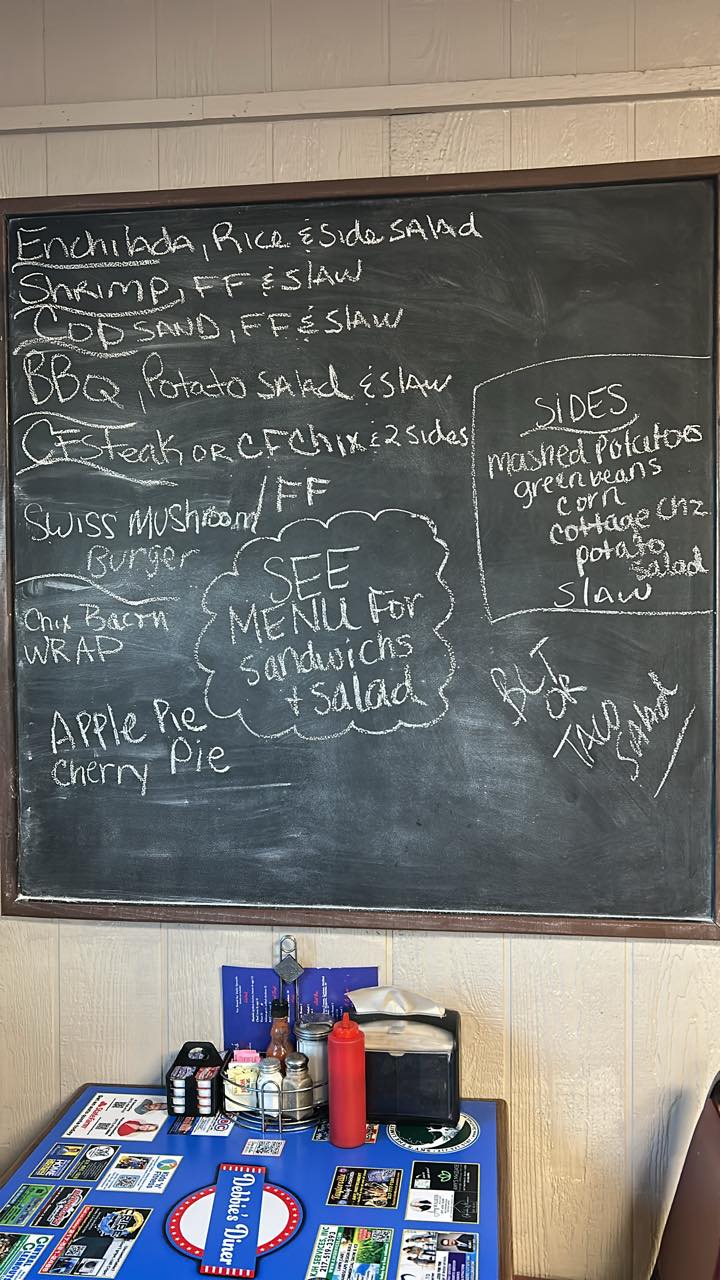 Enchilada, Rice & Side SAlad
SHRIMP, FF & SlAW
COD SAND, FF & SlAW
BBQ, Potato SAlad & SlAW
CFSteak OR CFChix & 2 Sides
Swiss MUSHroom/FF
Burger
Chix Bacon
WRAP
APPLE Pie
Cherry Pie
SEE
MENU For
Sandwichs
+ Salad
SIDES
mashed Potatoes
green beans
corn
cottage Chz
potato
salad
SlAW
BLT
OR
TACO
Salad
Debbie's Diner
217-519-2393